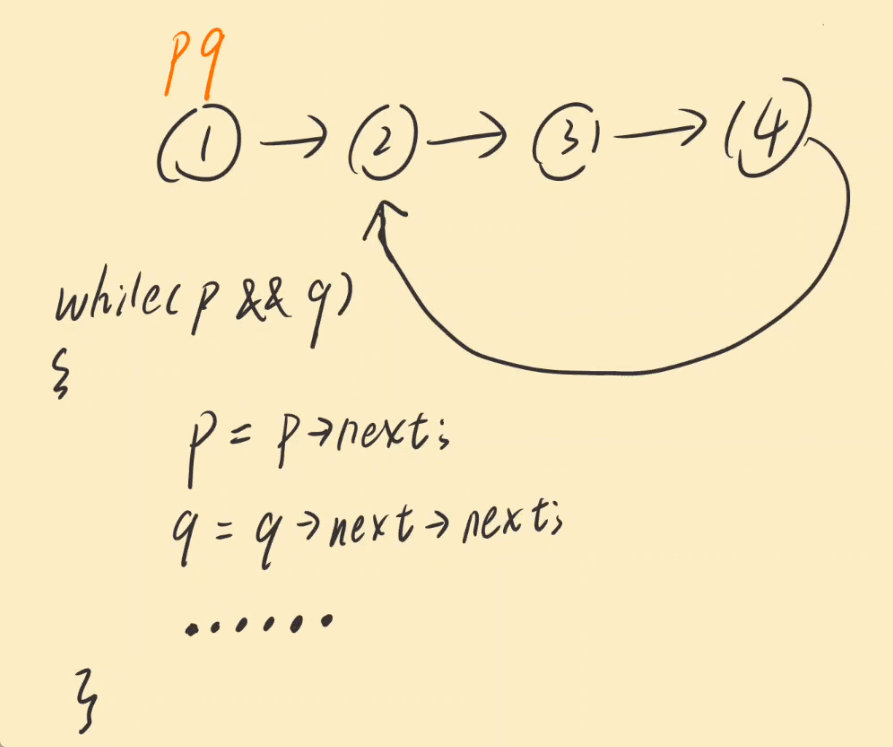 p q
1 → 2 → 3 → 4
while( p && q)
{
p = p→next;
q = q→next→next;
......
}